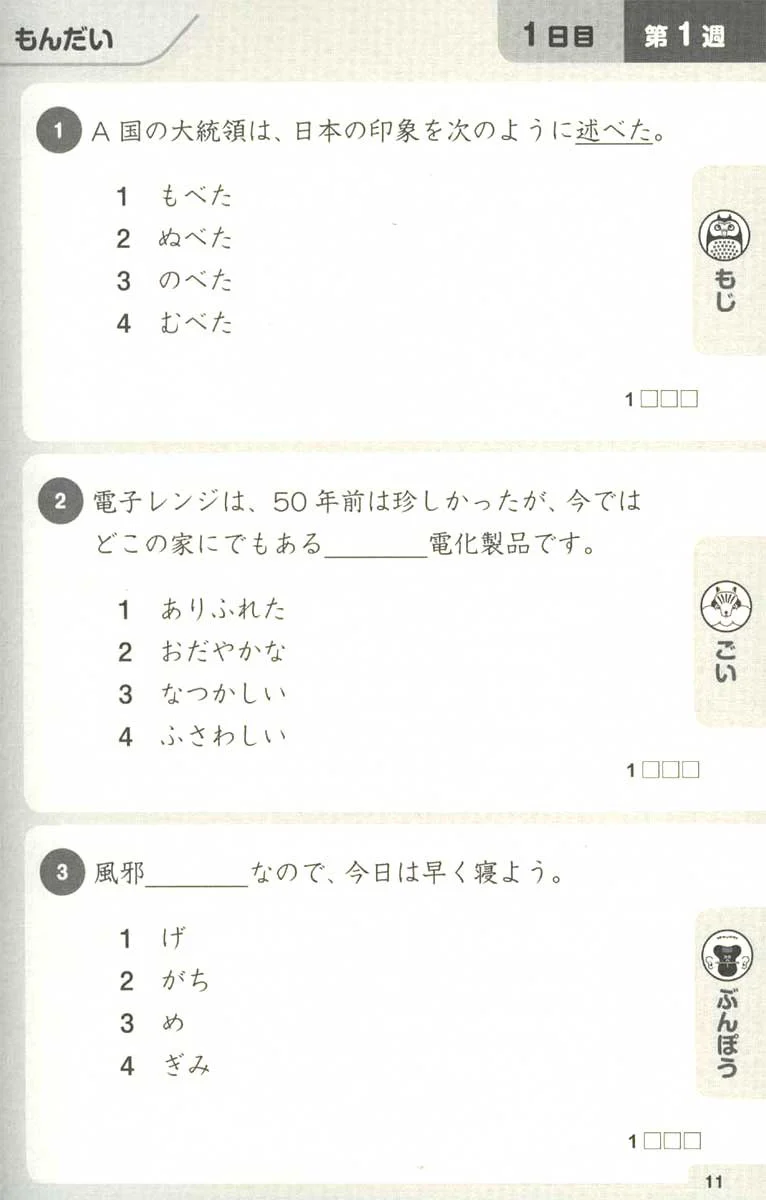 もんだい
1日目 第1週
1 A国の大統領は、日本の印象を次のように述べた。
1 もべた
2 ぬべた
3 のべた
4 むべた
もじ
1 □□□
2 電子レンジは、50年前は珍しかったが、今では
どこの家にでもある＿＿＿＿電化製品です。
1 ありふれた
2 おだやかな
3 なつかしい
4 ふさわしい
ごい
1 □□□
3 風邪＿＿＿＿なので、今日は早く寝よう。
1 げ
2 がち
3 め
4 ぎみ
ぶんぽう
1 □□□
11